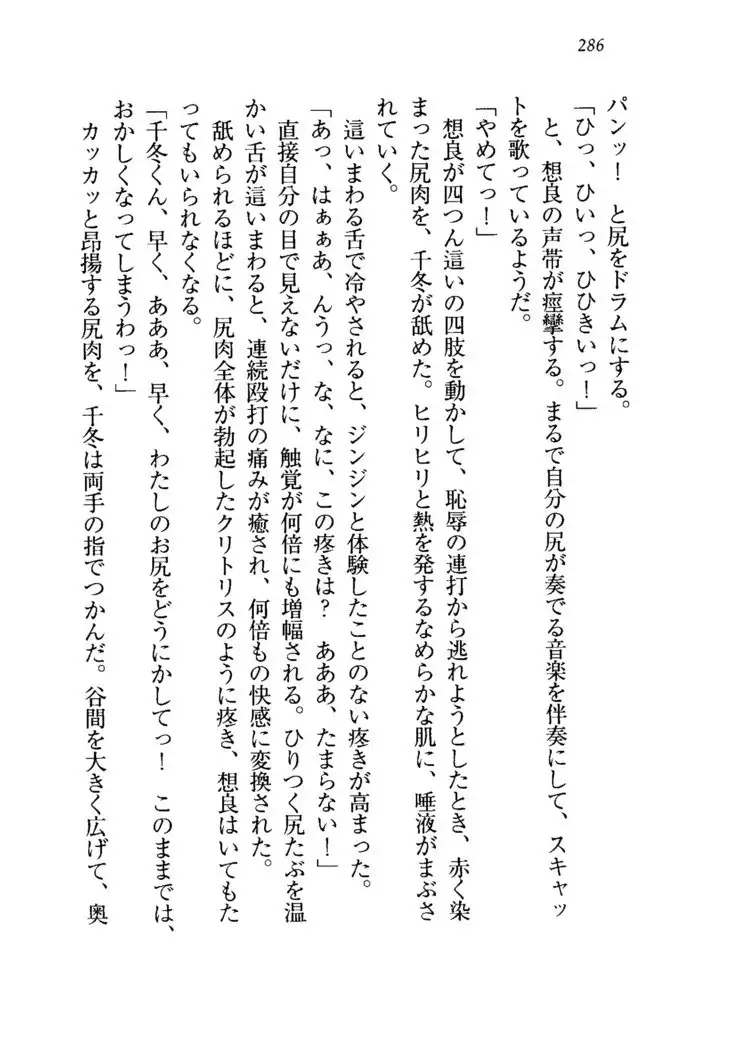 286
パンッ！　と尻をドラムにする。
「ひっ、ひいっ、ひひきいっ！」
と、想良の声帯が痙攣する。まるで自分の尻が奏でる音楽を伴奏にして、スキャッ
トを歌っているようだ。
「やめてっ！」
想良が四つん這いの四肢を動かして、恥辱の連打から逃れようとしたとき、赤く染
まった尻肉を、千冬が舐めた。ヒリヒリと熱を発するなめらかな肌に、唾液がまぶさ
れていく。
這いまわる舌で冷やされると、ジンジンと体験したことのない疼きが高まった。
「あっ、はぁぁあ、んうっ、な、なに、この疼きは？　あああ、たまらない！」
直接自分の目で見えないだけに、触覚が何倍にも増幅される。ひりつく尻たぶを温
かい舌が這いまわると、連続殴打の痛みが癒され、何倍もの快感に変換された。
舐められるほどに、尻肉全体が勃起したクリトリスのように疼き、想良はいてもた
ってもいられなくなる。
「千冬くん、早く、あああ、早く、わたしのお尻をどうにかしてっ！　このままでは、
おかしくなってしまうわっ！」
カッカッと昂揚する尻肉を、千冬は両手の指でつかんだ。谷間を大きく広げて、奥